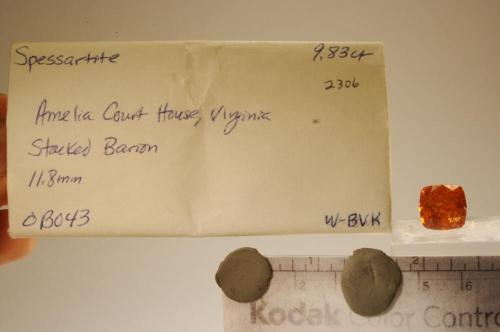 Spessartite 9.83ct
2306
Amelia Court House, Virginia
Stacked Barion
11.8mm
OB043 W-BVK
1 2
2 5 6
Kodak Color Contro